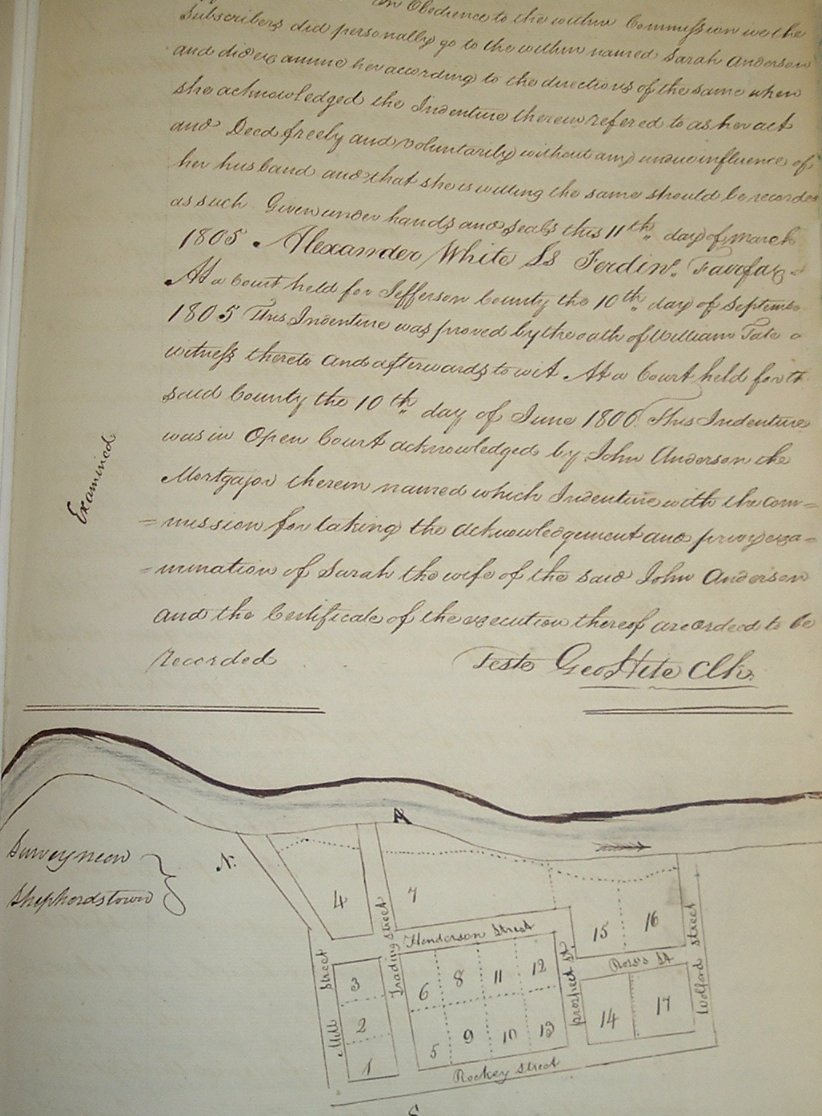 In Obedience to the within Commission we the
Subscribers did personally go to the within named Sarah Anderson
and did examine her according to the directions of the same when
she acknowledged the Indenture therein refered to as her act
and Deed freely and voluntarily without any undue influence of
her husband and that she is willing the same should be recorded
as such Given under hands and Seals this 11th day of March
1805. Alexander White Ls Ferdin. Fairfax
At a Court held for Jefferson County the 10th day of Septem
1805 This Indenture was proved by the oath of William Tate a
witness thereto and afterwards to wit At a Court held for th
said County the 10th day of June 1806. This Indenture
was in Open Court acknowledged by John Anderson the
Mortgajor therein named which Indenture with the com=
=mission for taking the acknowledgement and privy exa=
=mination of Sarah the wife of the said John Anderson
and the Certificate of the execution thereof are ordered to be
recorded Teste Geo Hite Clk.
Examined
A
Survey near
Shephordstown
N.
4
7
Henderson Street
Trading Street
Mill Street
3
2
1
6
8
11
12
5
9
10
13
prospect St.
15
16
Ross St
14
17
Wolford Street
Rockey Street
S